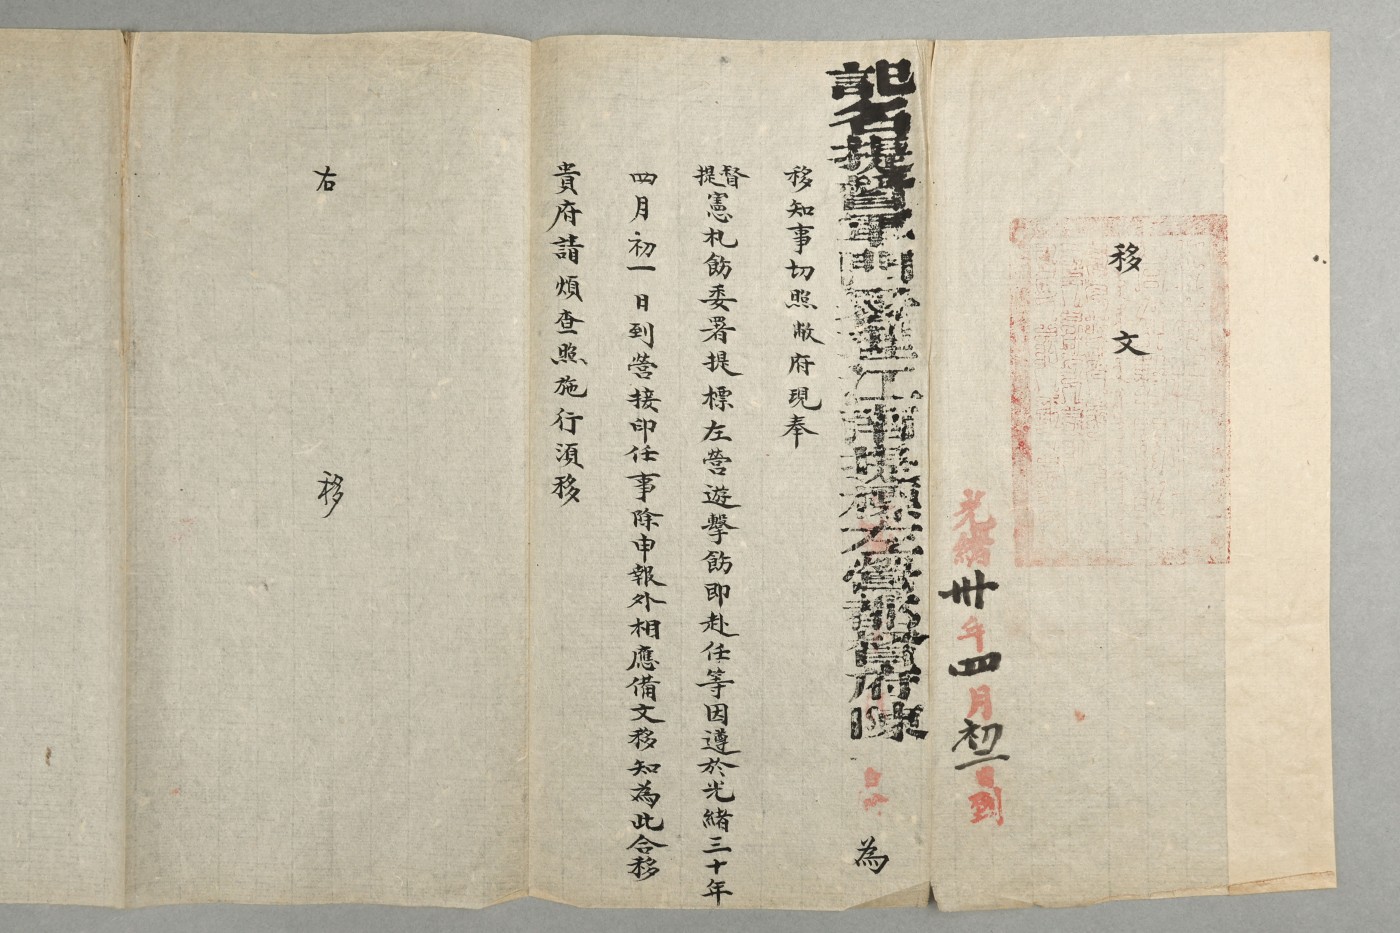 移文
光緒卅年四月初一日到
記名提督軍門署理江南提標左營都督府陳 為
移知事切照敝府現奉
督提憲札飭委署提標左營遊擊飭即赴任等因遵於光緒三十年
四月初一日到營接印任事除申報外相應備文移知為此合移
貴府請煩查照施行須移
右移